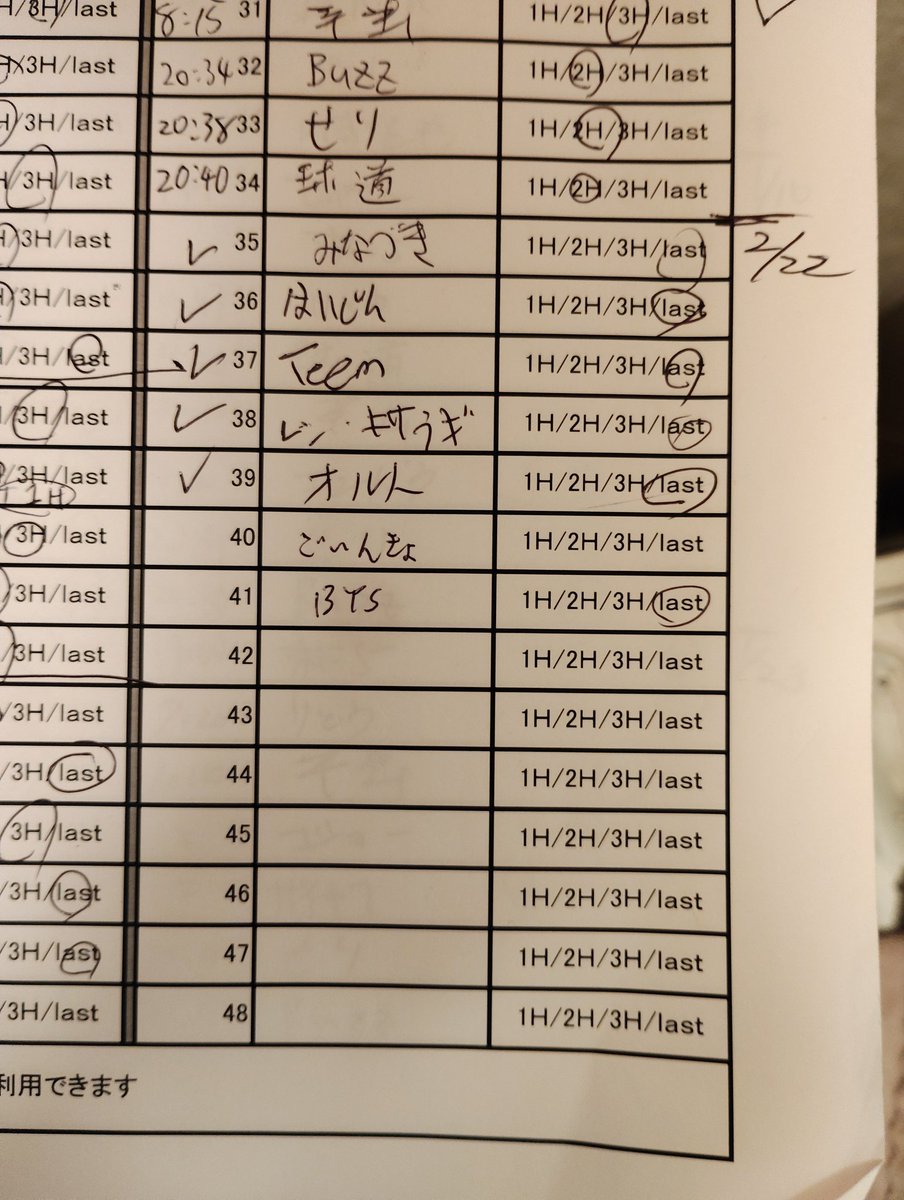 H/3H/last 8:15 31 1H/2H/3H/last
H/3H/last 20:34 32 Buzz 1H/2H/3H/last
H/3H/last 20:38 33 せり 1H/2H/3H/last
H/3H/last 20:40 34 球道 1H/2H/3H/last
H/3H/last 35 みなづき 1H/2H/3H/last 2/22
H/3H/last 36 はいじん 1H/2H/3H/last
/3H/last 37 Teem 1H/2H/3H/last
/3H/last 38 レン・ 1H/2H/3H/last
/3H/last 39 オルト 1H/2H/3H/last
1H
/3H/last 40 ごいんきょ 1H/2H/3H/last
/3H/last 41 BTS 1H/2H/3H/last
/3H/last 42 1H/2H/3H/last
/3H/last 43 1H/2H/3H/last
/3H/last 44 1H/2H/3H/last
3H/last 45 1H/2H/3H/last
/3H/last 46 1H/2H/3H/last
/3H/last 47 1H/2H/3H/last
/3H/last 48 1H/2H/3H/last
利用できます